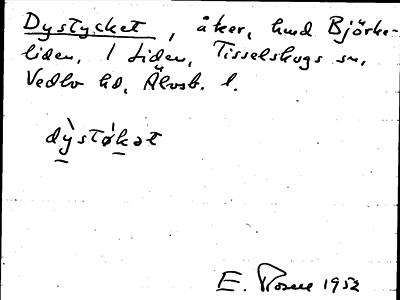 Dystycket, åker, hmd Björke-
liden, 1 Liden, Tisselskogs sn,
Vedbo hd, Älvsb. l.
dỳstøkət
E. Rosell 1952